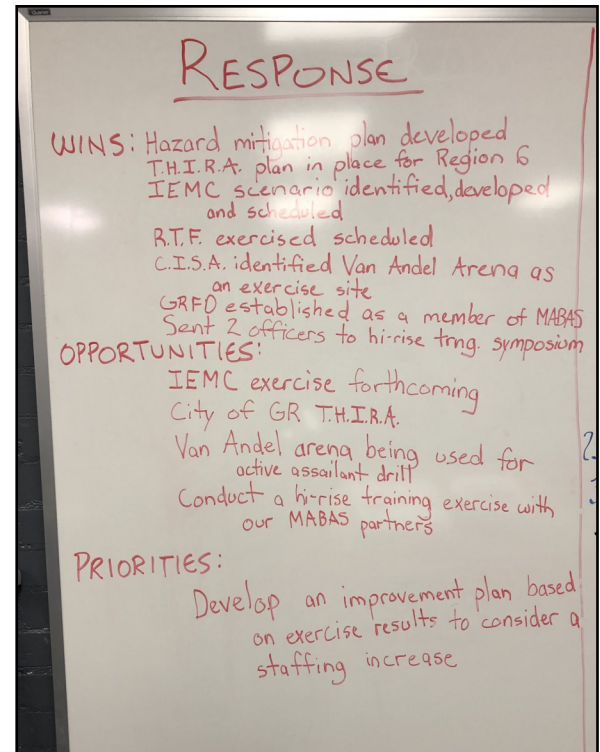 RESPONSE
WINS: Hazard mitigation plan developed
T.H.I.R.A. plan in place for Region 6
IEMC scenario identified, developed
and scheduled
R.T.F. exercised scheduled
C.I.S.A. identified Van Andel Arena as
an exercise site
GRFD established as a member of MABAS
Sent 2 officers to hi-rise trng. symposium
OPPORTUNITIES:
IEMC exercise forthcoming
City of GR T.H.I.R.A.
Van Andel arena being used for
active assailant drill
Conduct a hi-rise training exercise with
our MABAS partners
PRIORITIES:
Develop an improvement plan based
on exercise results to consider a
staffing increase